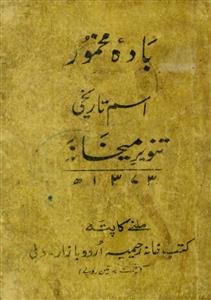 بادۂ مخمور
اسم تاریخی
تنویر میخانہ
۱۳۷۳ھ
ملنے کا پتہ
کتب خانہ رحیمیہ اردو بازار۔ دہلی
(قیمت تین روپے)